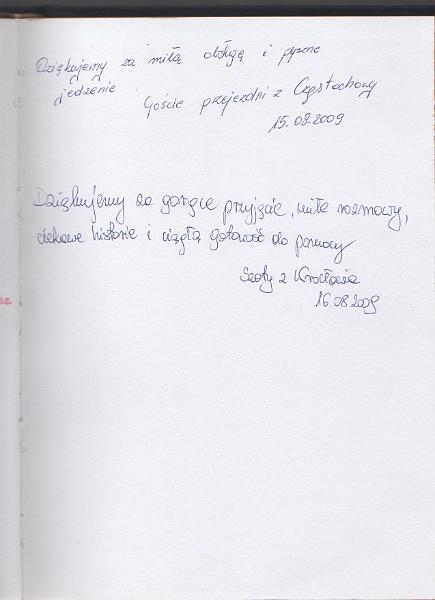 Dziękujemy za miłą obsługę i pyszne
jedzenie
Goście przejezdni z Częstochowy
15.08.2009
Dziękujemy za gorące przyjęcie, miłe rozmowy,
ciekawe historie i ciągłą gotowość do pomocy
z Wrocławia
16.08.2009